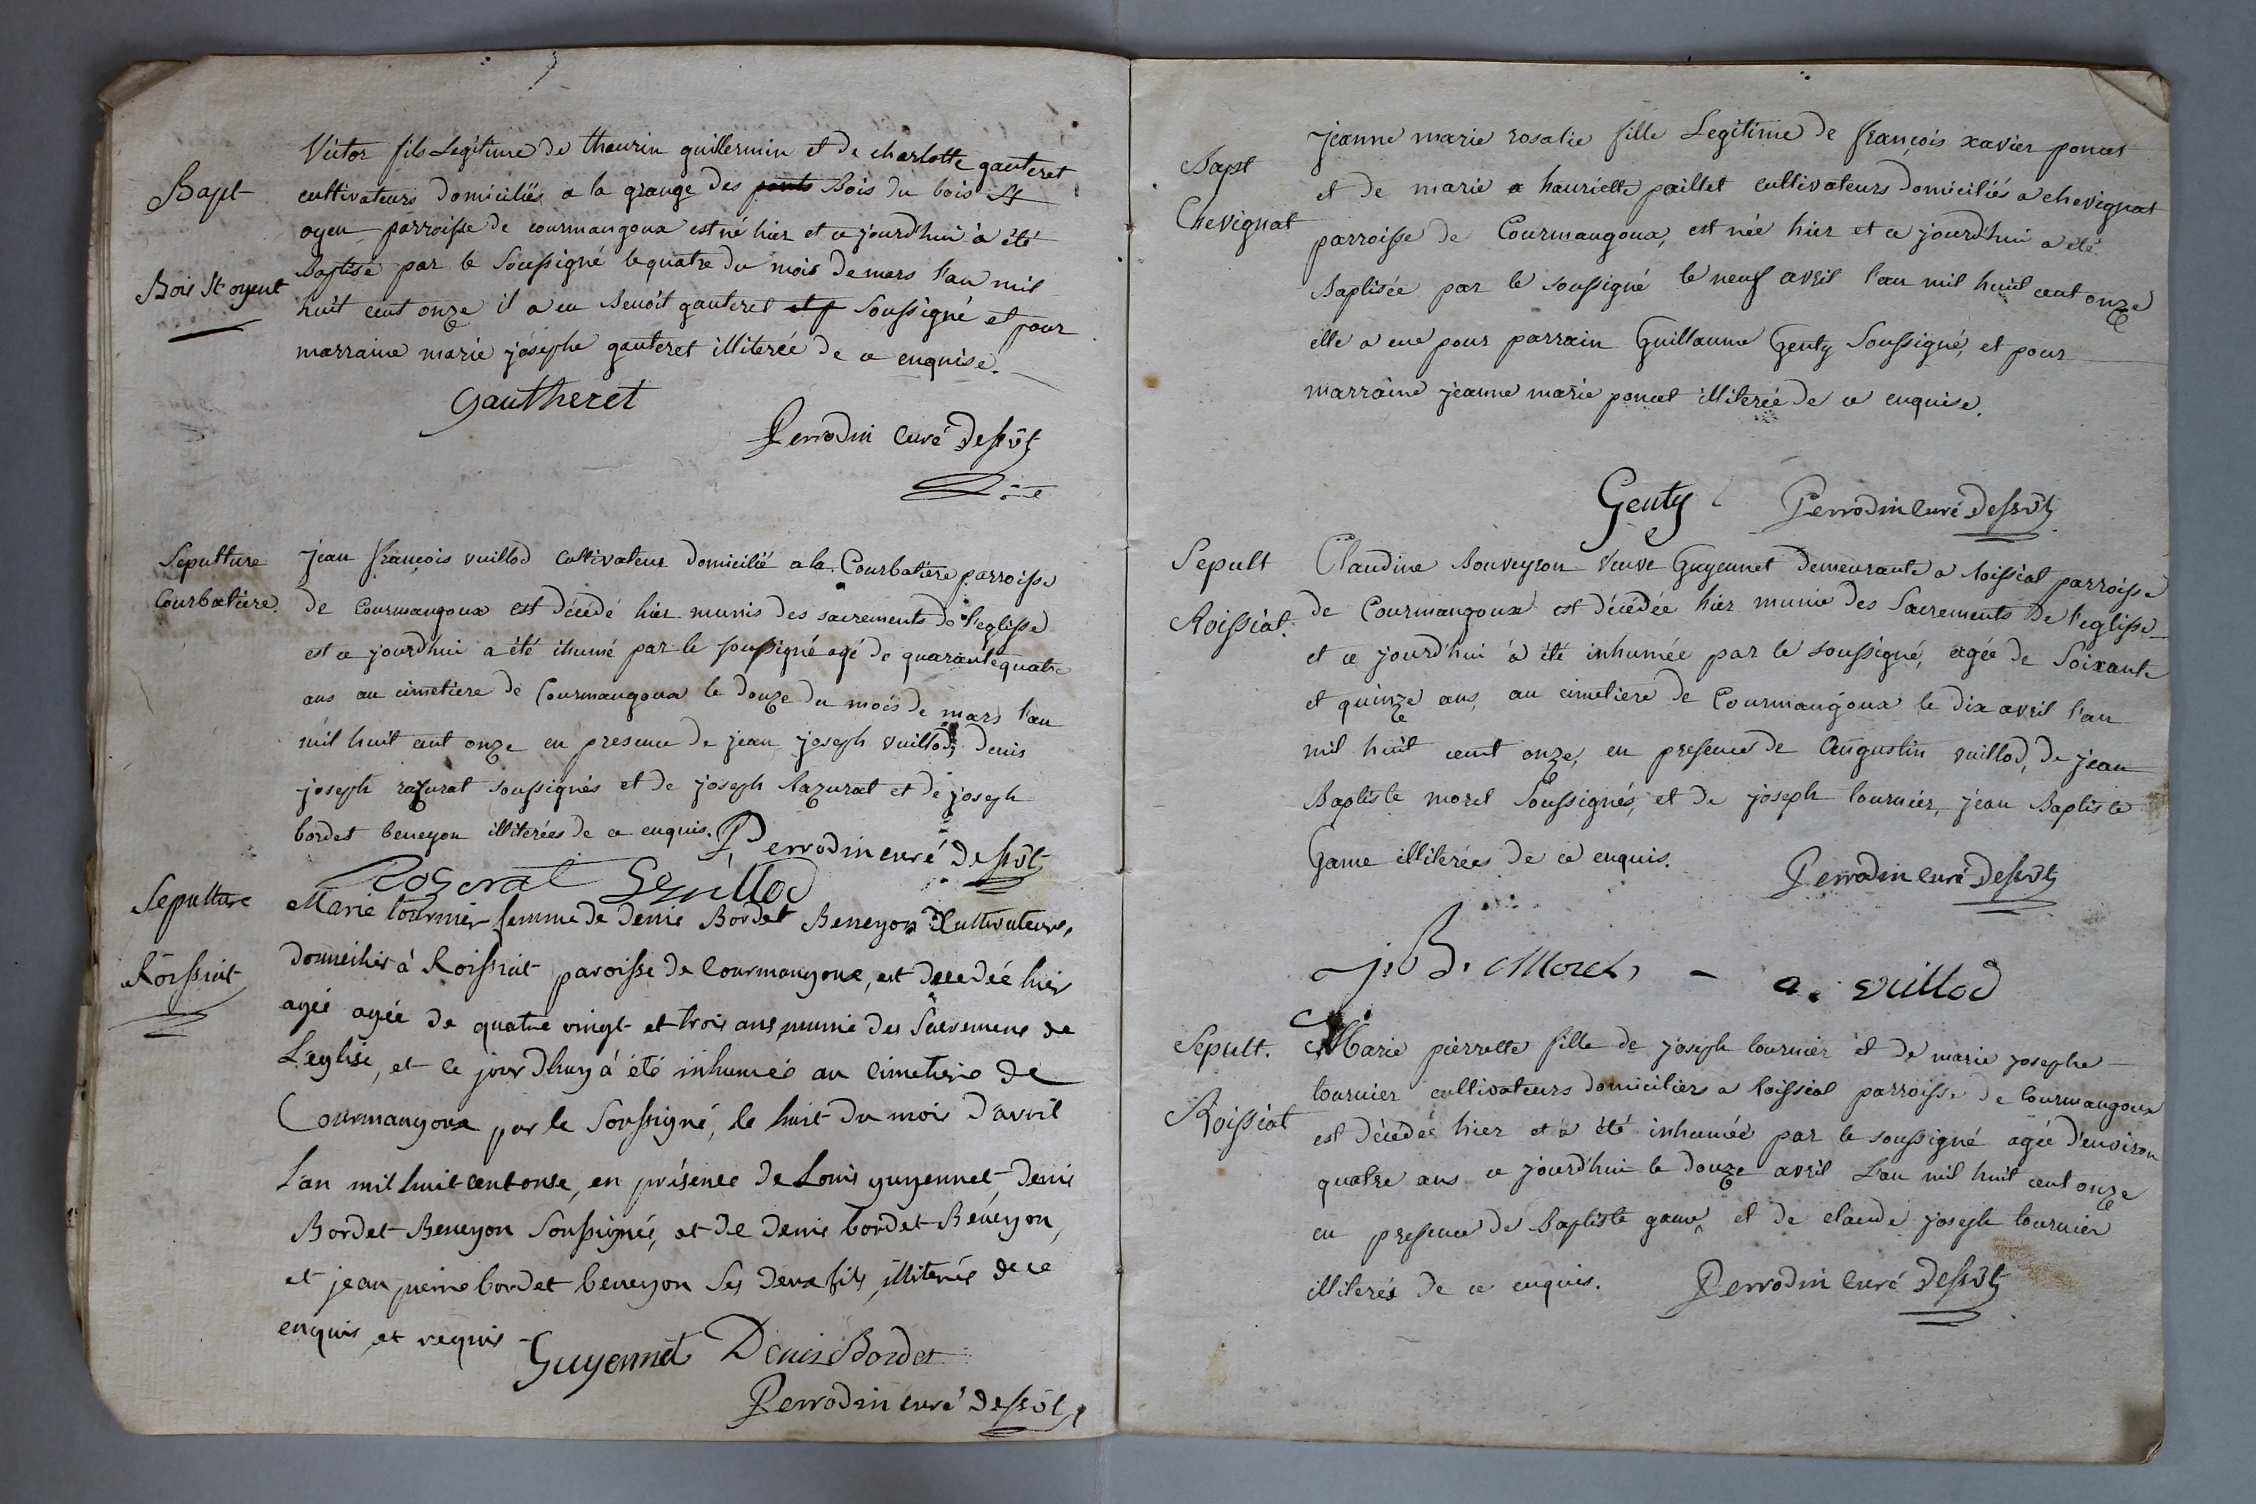 Bapt
Bois St oyent
Victor fils Legitime de thaurin guillermin et de charlotte gauteret
cultivateurs domiciliés a la grange des ponts Bois du bois St
oyen parroisse de courmangoux est né hier et ce jourd'hui à été
Baptisé par le soussigné le quatre du mois de mars l'an mil
huit cent onze il a eu Benoit gauteret et p soussigné et pour
marraine marie josephe gauteret illiterée de ce enquise.
Gautheret
Perrodin curé dessrvt
Sepulture
Courbatiere.
jean françois vuillod cultivateur domicilié a la Courbatiere parroisse
de Courmangoux est décédé hier munis des sacrements de l'eglisse
est ce jourd'hui a été ihumé par le soussigné agé de quarante quatre
ans au cimetiere de Courmangoux le douze du mois de mars l'an
mil huit cent onze en presence de jean joseph vuillod, denis
joseph razurat soussignés et de joseph Razurat et de joseph
bordet beneyon illiterées de ce enquis. Perrodin curé dessrvt
Rozerat Vuillod
Sepulture
Roissiat
Marie tournier femme de denis Bordet Beneyon Cultivateurs,
domiciliés à Roissiat paroisse de Courmangoux, est decedée hier
agée agée de quatre vingt et trois ans, munie des Sacremens de
L'eglise, et ce jourdhuy à été inhumée au Cimetiere de
Courmangoux par le Soussigné, le huit du mois d'avril
L'an mil huit cent onse, en présence de Louis guyennet, denis
Bordet Beneyon Soussignés, et de denis bordet Béneyon,
et jean pierre bordet beneyon Ses deux fils, illiterés de ce
enquis et requis
Guyennet Denis Bordet
Perrodin curé dessrvt
Bapt
Chevignat
jeanne marie rosalie fille Legitime de françois xavier poncet
et de marie a hauriette paillet cultivateurs domiciliés a chevignat
parroisse de Courmangoux, est née hier et ce jourd'hui a été
Baptisée par le soussigné le neuf avril l'an mil huit cent onze
elle a eue pour parrain Guillaume Genty Soussigné, et pour
marraine jeanne marie poncet illiterée de ce enquise.
Genty Perrodin curé dessrvt
Sepult
Roissiat.
Claudine Bouveyron veuve Guyennet demeurante a Roissiat parroisse
de Courmangoux est décédée hier munie des Sacrements de l'eglisse
et ce jourd'hui à été inhumée par le soussigné, agée de Soixante
et quinze ans, au cimetiere de Courmangoux le dix avril l'an
mil huit cent onze, en presence de Augustin vuillod, de jean
Baptiste morel Soussignés, et de joseph tournier, jean Baptiste
Game illiterées de ce enquis.
Perrodin curé dessrvt
J. B. Morel, a. vuillod
Sepult.
Roissiat
Marie pierrette fille de joseph tournier et de marie josephe
tournier cultivateurs domiciliers a Roissiat parroisse de Courmangoux
est décédée hier et a été inhumée par le soussigné agée d'environ
quatre ans ce jourd'hui le douze avril L'an mil huit cent onze
en presence de Baptiste game, et de claude joseph tournier
illiterés de ce enquis. Perrodin curé dessrvt